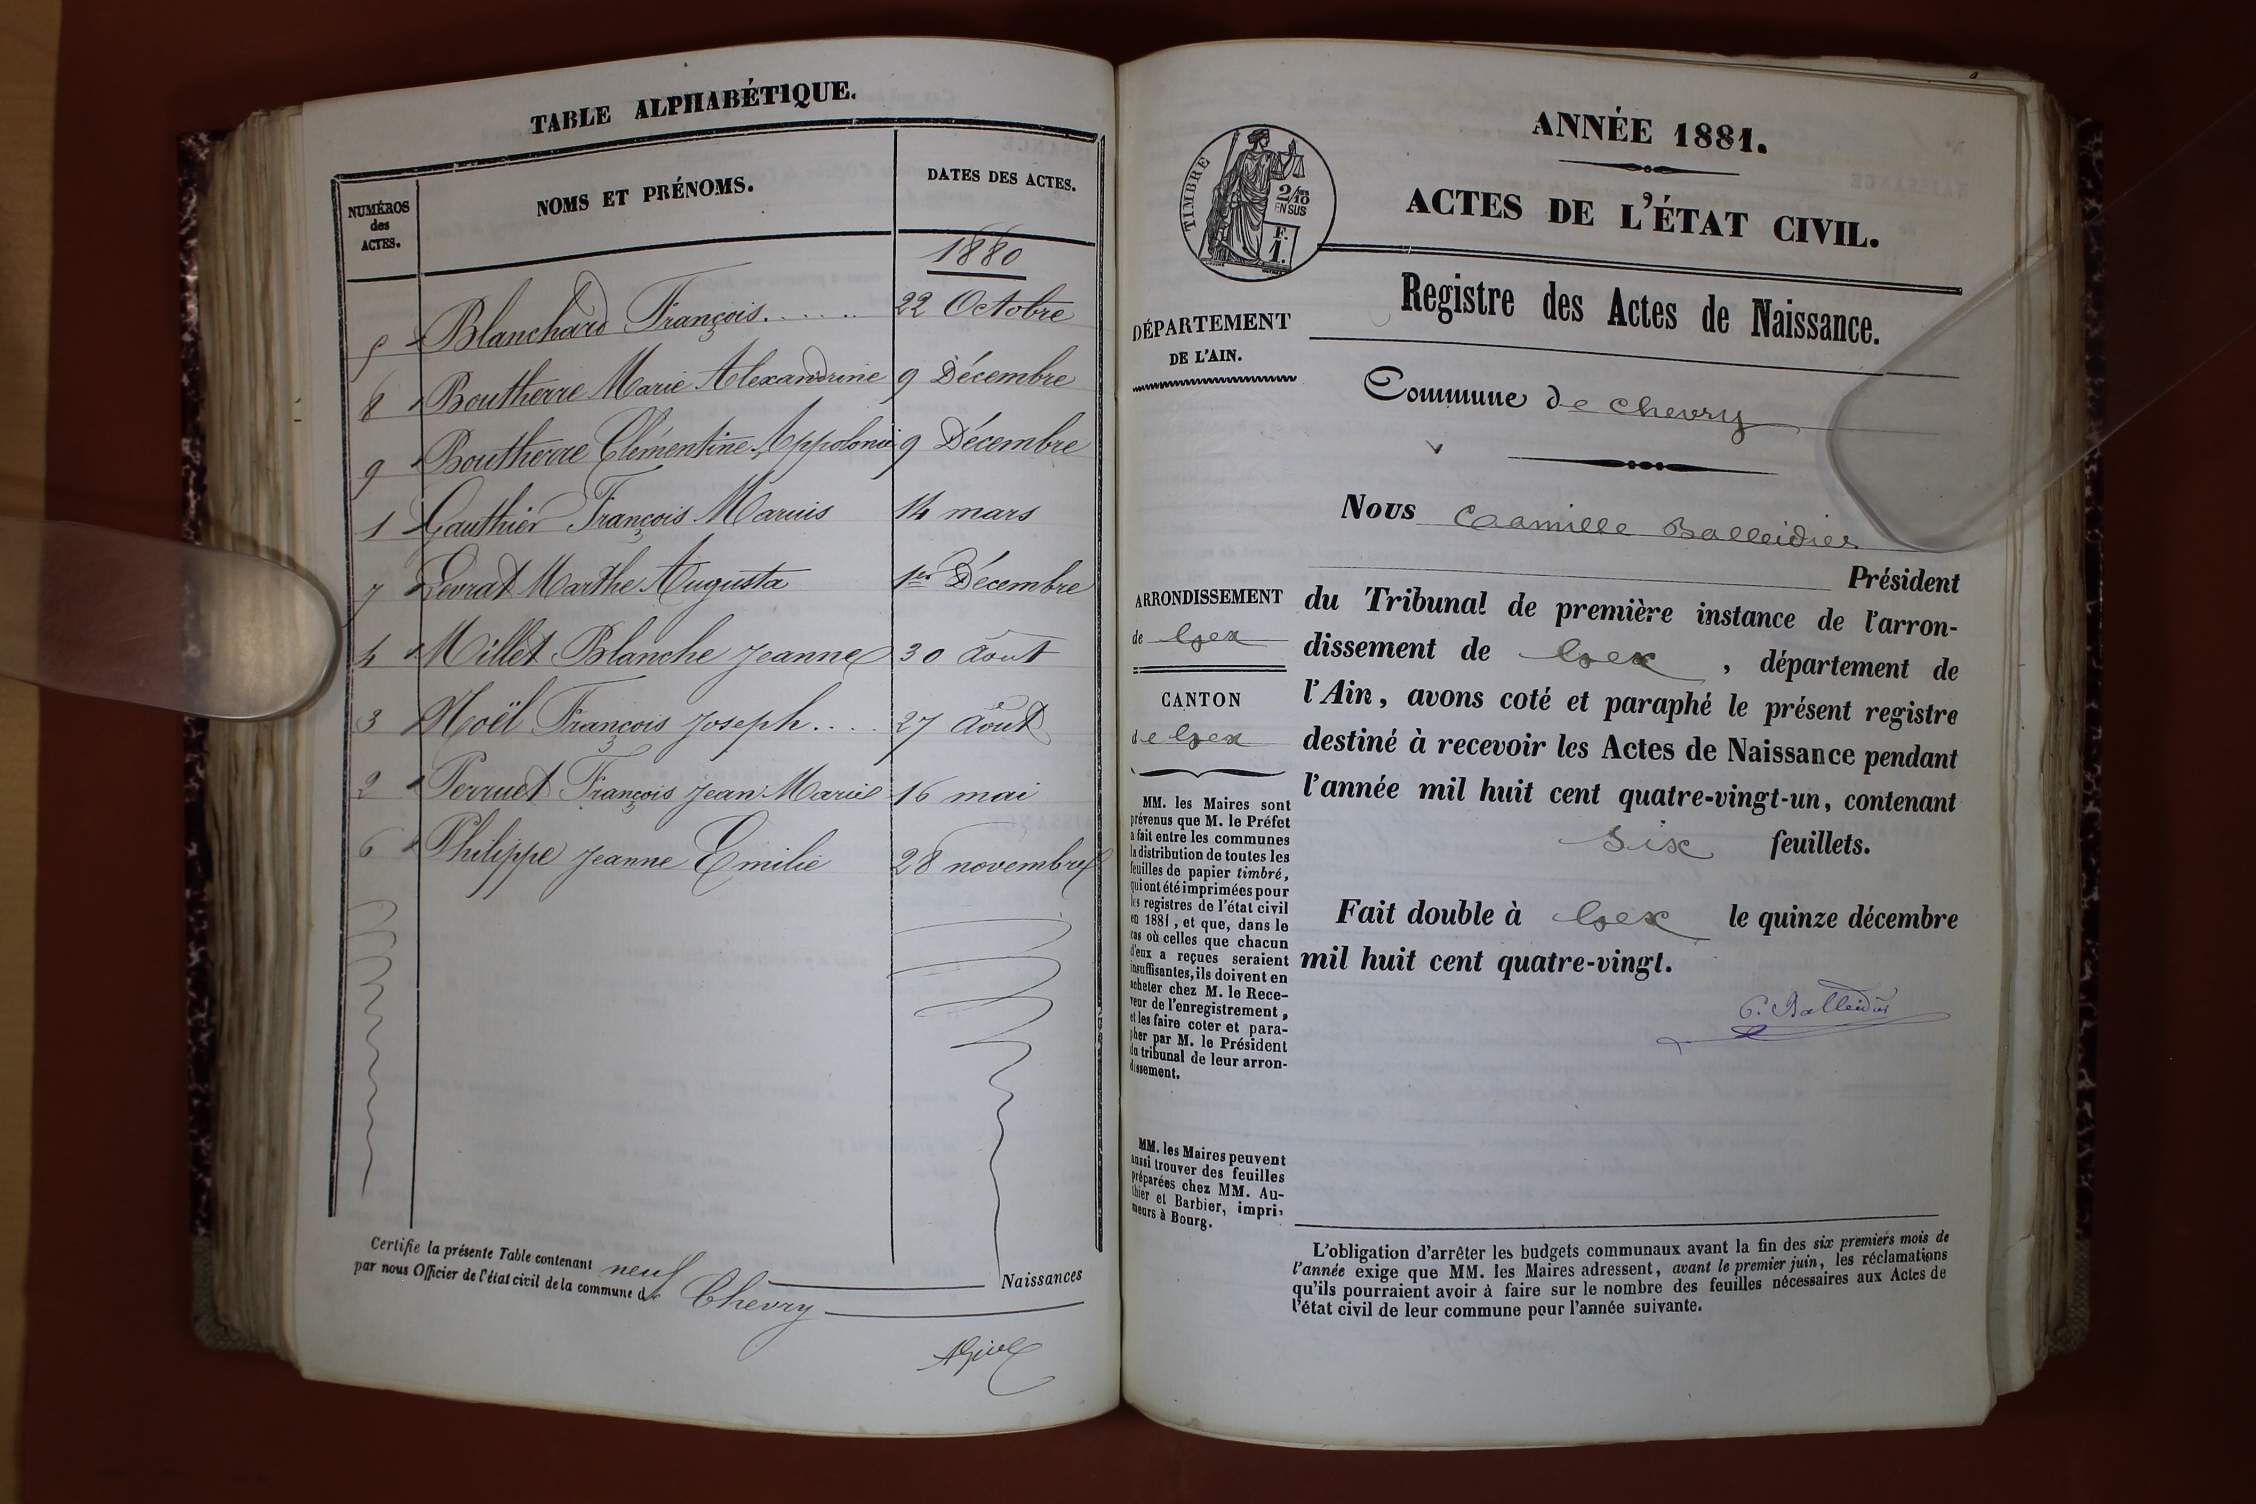 TABLE ALPHABÉTIQUE.
NUMÉROS
des
ACTES.
NOMS ET PRÉNOMS.
DATES DES ACTES.
1880
5 Blanchard François...... 22 Octobre
8 Boutherre Marie Alexandrine 9 Décembre
9 Boutherre Clémentine Appolonie 9 Décembre
1 Gauthier François Marius 14 mars
7 Levrat Marthe Augusta 1er Décembre
4 Millet Blanche Jeanne 30 Août
3 Noël François Joseph.... 27 Août
2 Perruet François Jean Marie 16 mai
6 Philippe Jeanne Emilie 28 novembre
Certifie la présente Table contenant neuf Naissances
par nous Officier de l'état civil de la commune de Chevry
ANNÉE 1881.
ACTES DE L'ÉTAT CIVIL.
TIMBRE
2/10
EN SUS
F.
1.
Registre des Actes de Naissance.
DÉPARTEMENT
DE L'AIN.
Commune de chevry
Nous Camille Balleidier
Président
du Tribunal de première instance de l'arron-
dissement de Gex, département de
l'Ain, avons coté et paraphé le présent registre
destiné à recevoir les Actes de Naissance pendant
l'année mil huit cent quatre-vingt-un, contenant
six feuillets.
Fait double à Gex le quinze décembre
mil huit cent quatre-vingt.
C. Balleidier
ARRONDISSEMENT
de Gex
CANTON
de Gex
MM. les Maires sont
prévenus que M. le Préfet
a fait entre les communes
la distribution de toutes les
feuilles de papier timbré,
qui ont été imprimées pour
les registres de l'état civil
en 1881, et que, dans le
cas où celles que chacun
d'eux a reçues seraient
insuffisantes, ils doivent en
acheter chez M. le Rece-
veur de l'enregistrement,
et les faire coter et para-
pher par M. le Président
du tribunal de leur arron-
dissement.
MM. les Maires peuvent
aussi trouver des feuilles
préparées chez MM. Au-
thier et Barbier, impri-
meurs à Bourg.
L'obligation d'arrêter les budgets communaux avant la fin des six premiers mois de
l'année exige que MM. les Maires adressent, avant le premier juin, les réclamations
qu'ils pourraient avoir à faire sur le nombre des feuilles nécessaires aux Actes de
l'état civil de leur commune pour l'année suivante.